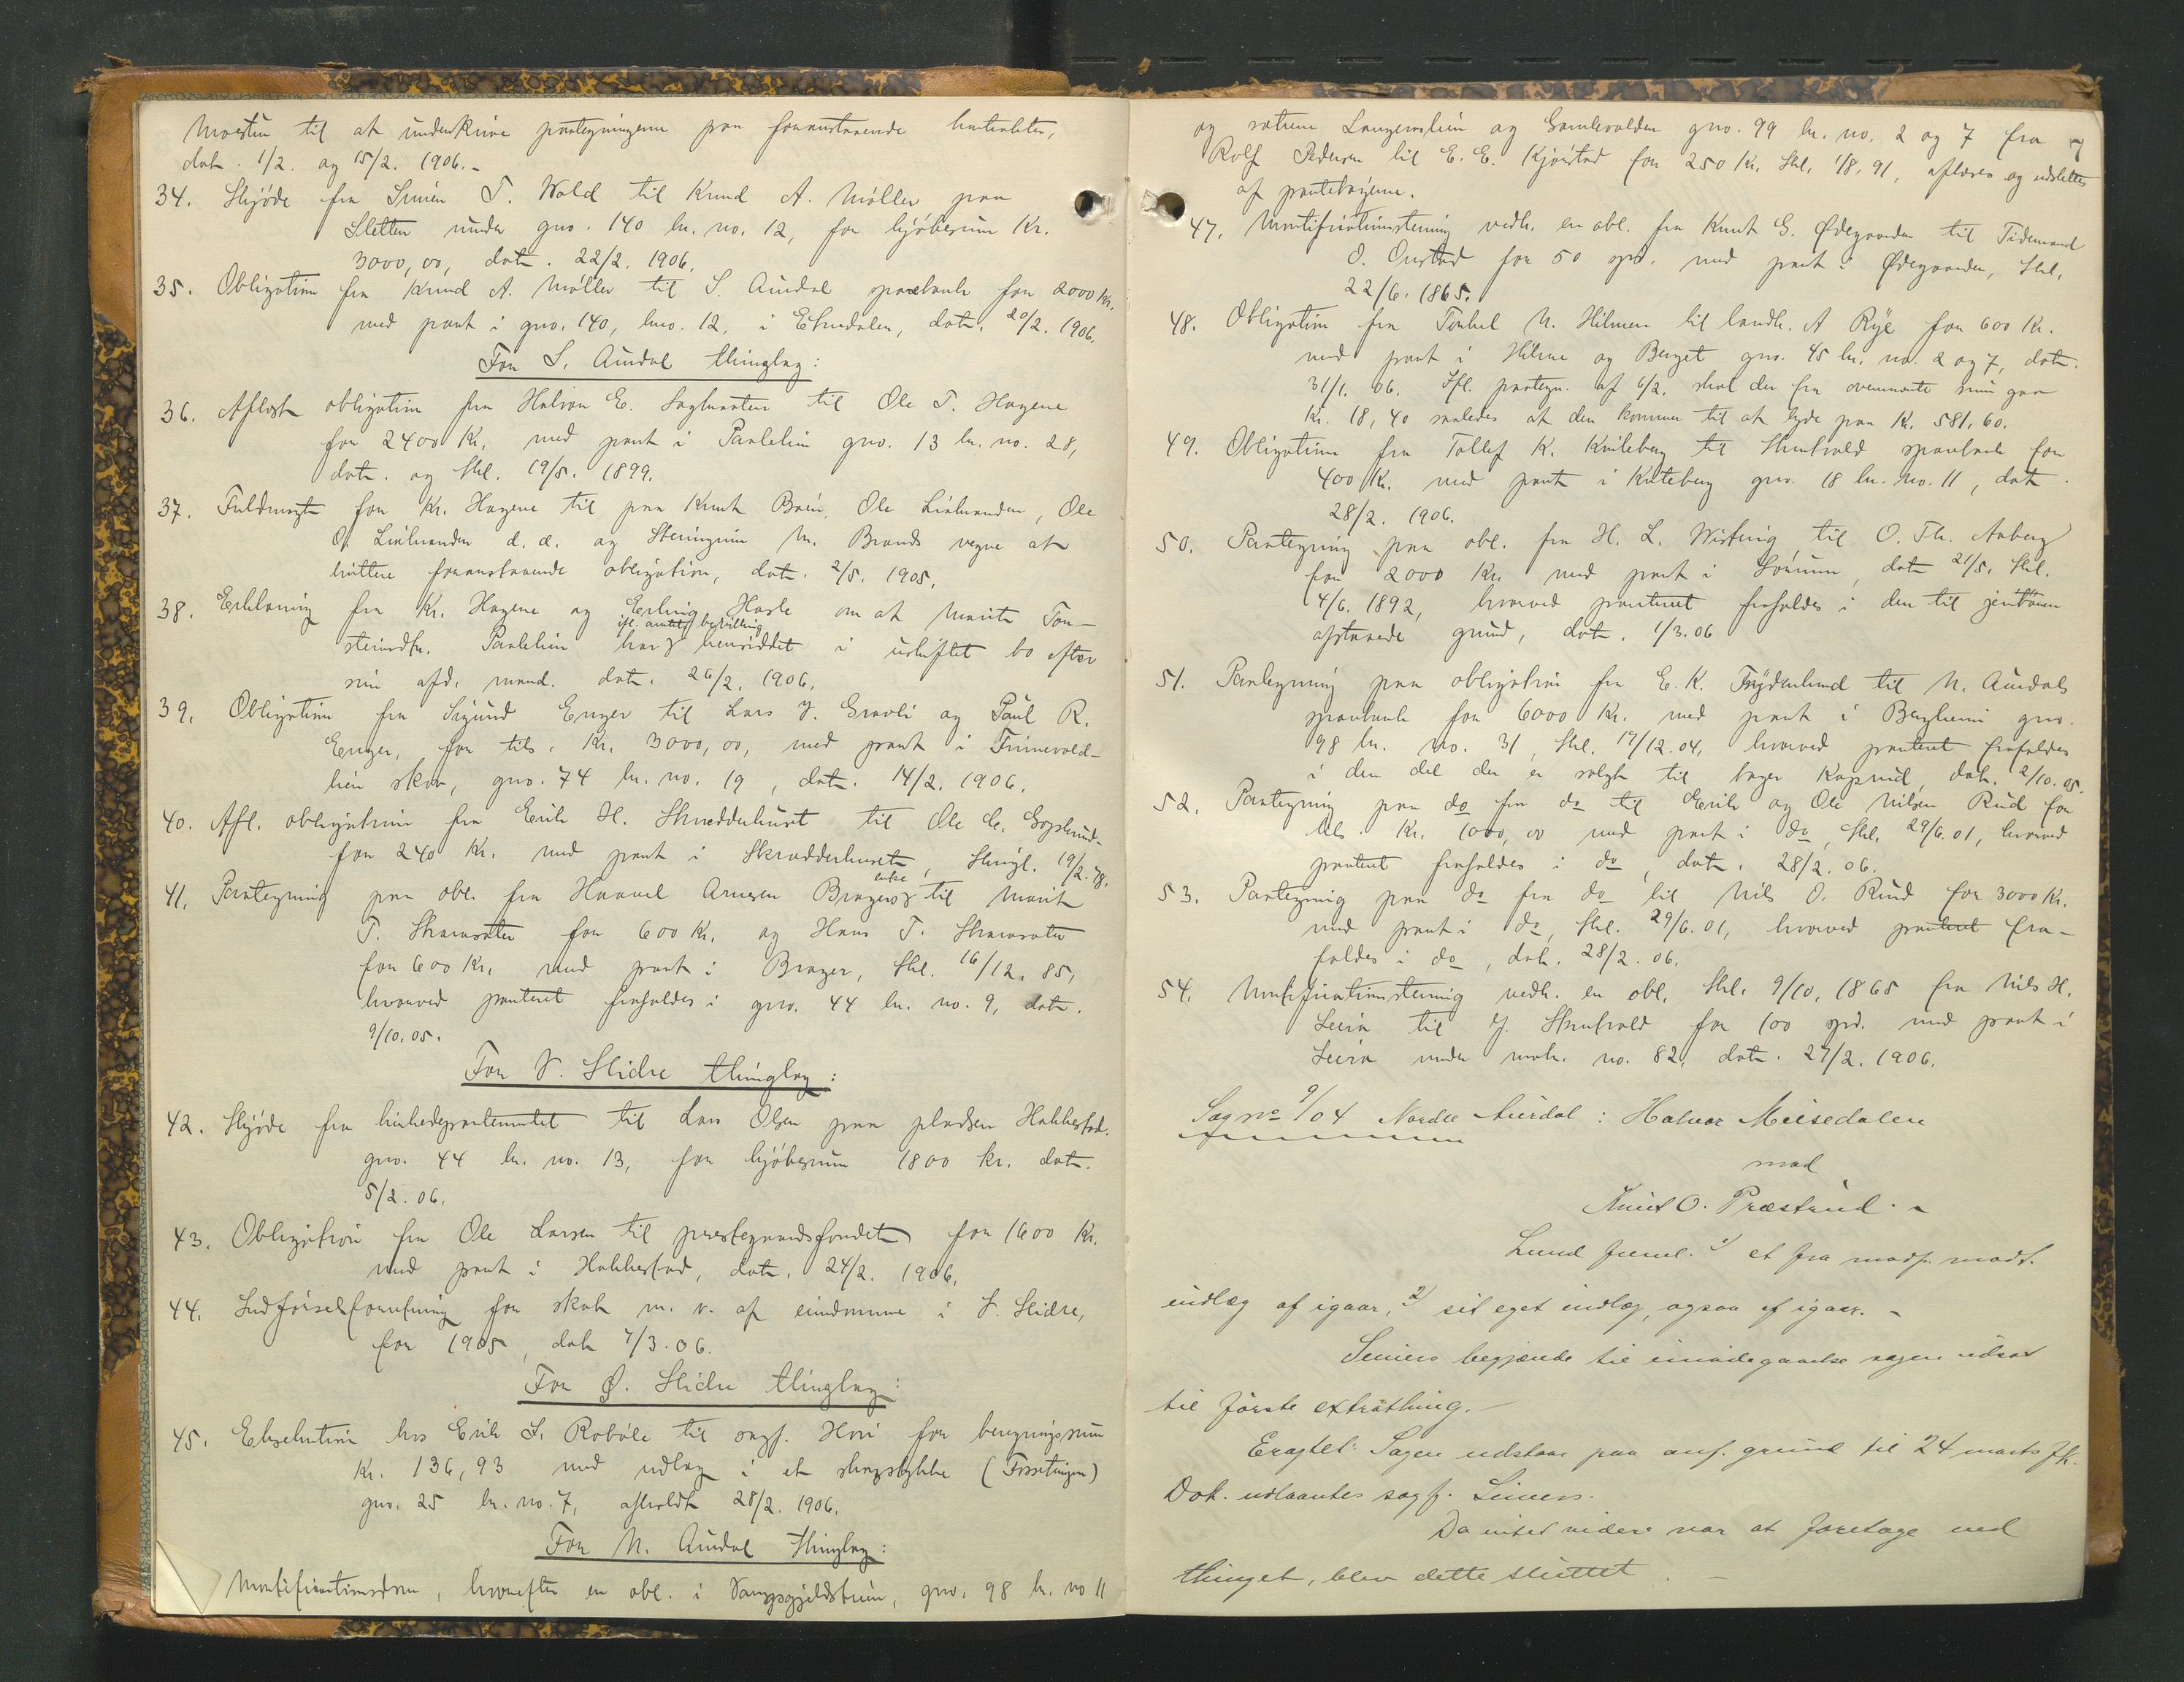 til at underskrive paategningerne paa foranstaaende
dat. 1/2. og 15/2. 1906.-
34. Skjøde fra Simen T. Wold til Knud A. Møller paa
Sletten under gno. 140 br. no. 12, for kjøbesum Kr.
3000,00, dat. 22/2. 1906.
35. Obligation fra Knud A. Møller til S. Aurdal sparebank for 2000 Kr.
med pant i gno. 140, bno. 12, i Etnedalen, dat. 20/2. 1906.
For S. Aurdal thinglag:
36. Aflæst obligation fra Halvor E. til Ole T. Hagene
for 2400 Kr. med pant i gno. 13 br. no. 28,
dat. og thl. 19/5. 1899.
37. Fuldmagt for Kr. Hagene til paa Knut Ole Ole
O. d. æ. og M. Brands vegne at
kvittere foranstaaende obligation, dat. 2/5. 1905.
38. Erklæring fra Kr. Hagene og Erling Hasle om at Marit Ton-
ifl. amtets bevilling
steinsdtr. har hensiddet i uskiftet bo efter
sin afd. mand. dat. 26/2. 1906.
39. Obligation fra Sigurd Enger til Lars J. Gravli og Paul R.
Enger, for tils. Kr. 3000,00, med pant i
lien skov, gno. 74 br. no. 19, dat. 14/2. 1906.
40. Afl. obligation fra Erik H. Skrædderhuset til Ole
for 240 Kr. med pant i Skrædderhuset, thingl. 19/2. 78.
enke
41. Paategning paa obl. fra Haavel Arnesen Bragers til Marit
T. for 600 Kr. og Hans T.
for 600 Kr. med pant i Brager, thl. 16/12. 85,
hvorved panteret frafaldes i gno. 44 br. no. 9, dat.
9/10. 05.
For V. Slidre thinglag:
42. Skjøde fra kirkedepartementet til Lars Olsen paa pladsen Hakkestad,
gno. 44 br. no. 13, for kjøbesum 1800 kr. dat.
5/2. 06.
43. Obligation fra Ole Larsen til præstegaardsfondet for 1600 Kr.
med pant i Hakkestad, dat. 24/2. 1906.
44. Indførselforretning for skat m. v. af eiendomme i V. Slidre,
for 1905, dat 7/3. 06.
For Ø. Slidre thinglag:
45. Exekution hos Erik I. Robøle til sagf. Hovi for beregningssum
Kr. 136,93 med udlæg i et skogstykke
gno. 25 br. no. 7, afholdt 28/2. 1906.
For N. Aurdal thinglag:
Mortifikationsdom, hvorefter en obl. i gno. 98 br. no 11
7
og og gno. 99 br. no. 2 og 7 fra
Rolf Pedersen til E. E. Kjørstad for 250 Kr. thl. 1/8. 91, aflæses og udslettes
af pantebøgerne.
47. Mortifikationsstevning vedk. en obl. fra Knut G. Ødegaarden til Tidemand
O. Onstad for 50 spd. med pant i Ødegaarden, thl.
22/6. 1865.
48. Obligation fra N. Hilmen til landh. A Rye for 600 Kr.
med pant i Hilme og Berget gno. 45 br. no. 2 og 7, dat.
31/1. 06. Ifl. paategn. af 6/2. skal der fra ovennævnte sum gaa
Kr. 18,40 saaledes at den kommer til at lyde paa Kr. 581,60.
49. Obligation fra Tollef K. Kviteberg til sparebank for
400 Kr. med pant i Kviteberg gno. 18 br. no. 11, dat.
28/2. 1906.
50. Paategning paa obl. fra H. L. Wisting til O. Th. Aaberg
for 2000 Kr. med pant i dat 21/5. thl.
14/6. 1892, hvorved panteret frafaldes i den til jernbanen
afstaaede grund, dat. 1/3. 06
51. Paategning paa obligation fra E. K. Frydenlund til N. Aurdals
sparebank for 6000 Kr. med pant i Bergheim gno.
98 br. no. 31, thl. 17/12. 04, hvorved panteret frafaldes
i den del der er solgt til bager dat. 2/10. 05.
52. Paategning paa do fra do til Erik og Ole Nilsen Rud for
tils. Kr. 1000,00 med pant i do, thl. 29/6. 01, hvorved
panteret frafaldes i do, dat. 28/2. 06.
53. Paategning paa do fra do til Nils O. Ruud for 3000 Kr.
med pant i do, thl. 29/6. 01, hvorved panteret fra-
faldes i do, dat. 28/2. 06.
54. Mortifikationsstevning vedk. en obl. thl. 9/10. 1865 fra Nils H.
Leira til J. for 100 spd. med pant i
Leira under matr. no. 82, dat. 27/2. 1906.
Sag no 9/04 Nordre Aurdal: Halvor Meisedalen
mod
Knut O. Præstrud.
Lund freml. 1) et fra modp. modt.
indlæg af igaar, 2) sit eget indlæg, ogsaa af igaar. -
begjærede til imødegaaelse sagen udsat
til første extrathing. -
Eragtet: Sagen udstaar paa anf. grund til 24 marts fk.
Dok. udlaantes sagf.
Da intet videre var at foretage ved
thinget, blev dette sluttet. -